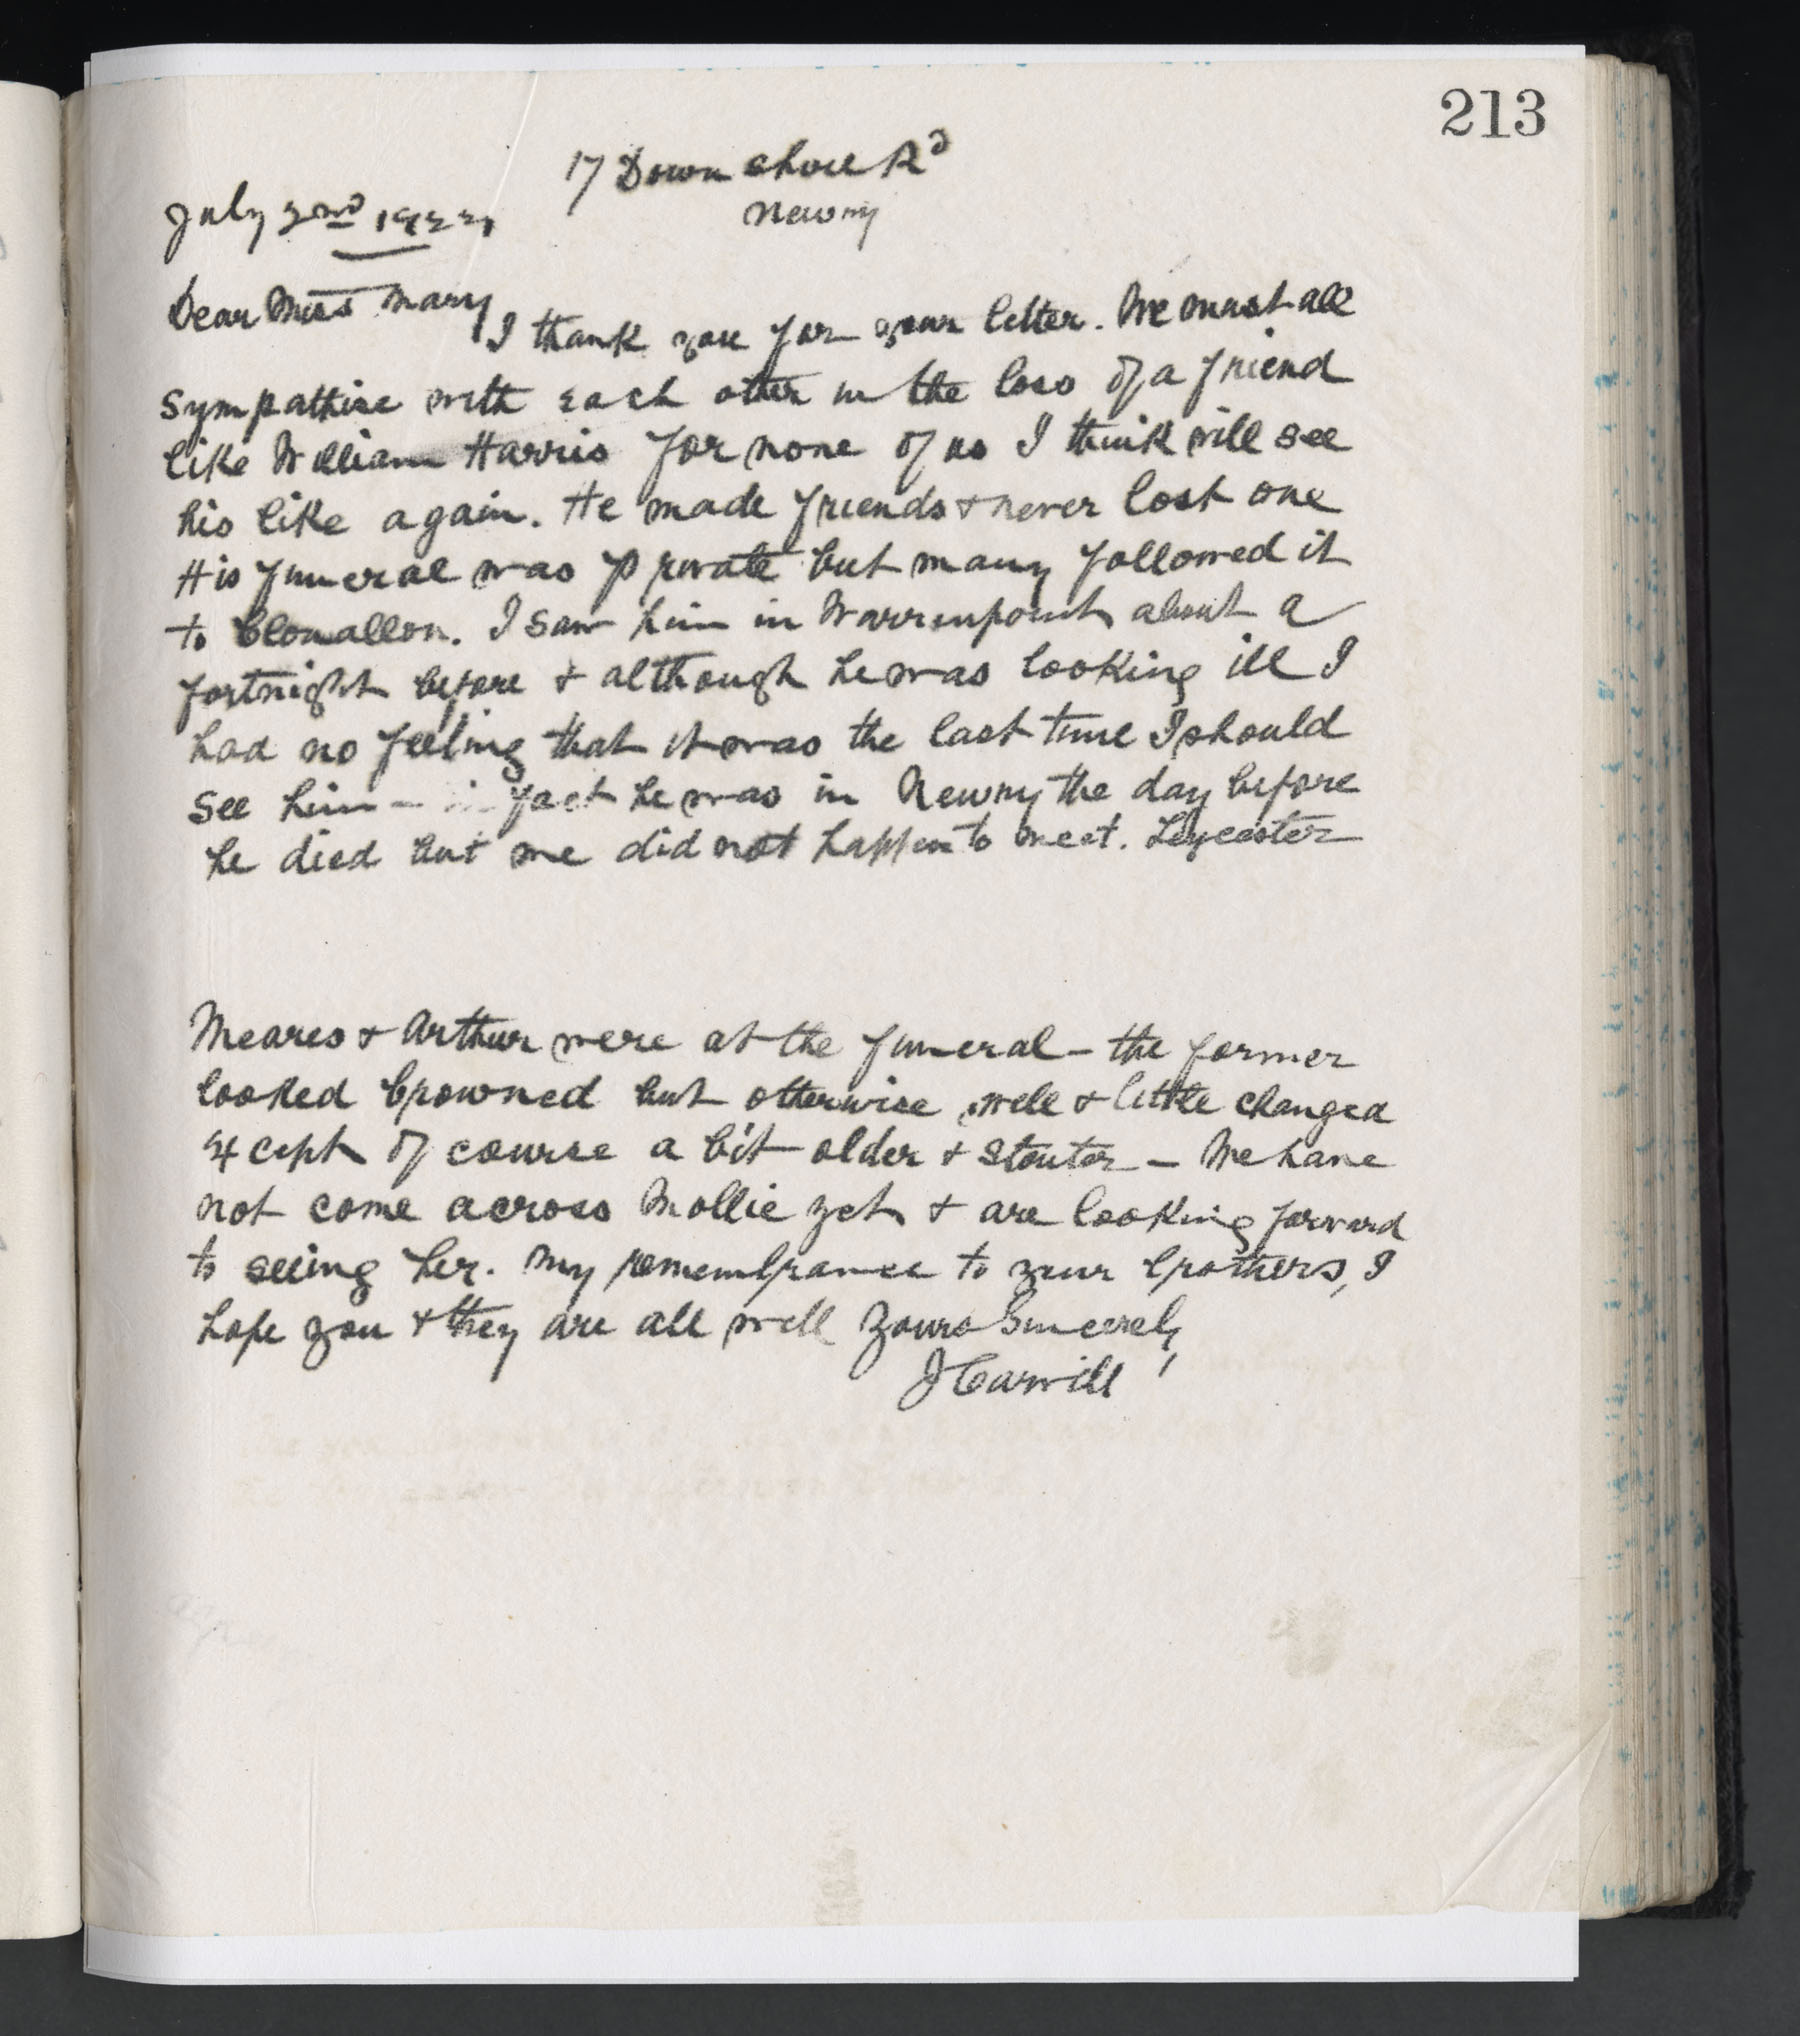 213
17 Downshore Rd
Newry
July 2nd
Dear Miss Mary
I thank you for your letter. We must all
sympathise with each other in the loss of a friend
like William Harris for none of us I think will see
his like again. He made friends & never lost one
His funeral was private but many followed it
to Clonallon. I saw him in Warrenpoint about a
fortnight before & although he was looking ill I
had no feeling that it was the last time I should
see him - in fact he was in Newry the day before
he died but we did not happen to meet. Leycester
Meares & Arthur were at the funeral - the former
looked browned but otherwise well & little changed
except of course a bit older & stouter - We have
not come across Mollie yet & are looking forward
to seeing her. My remembrance to your brothers, I
hope you & they are all well Yours Sincerely
J Carvill